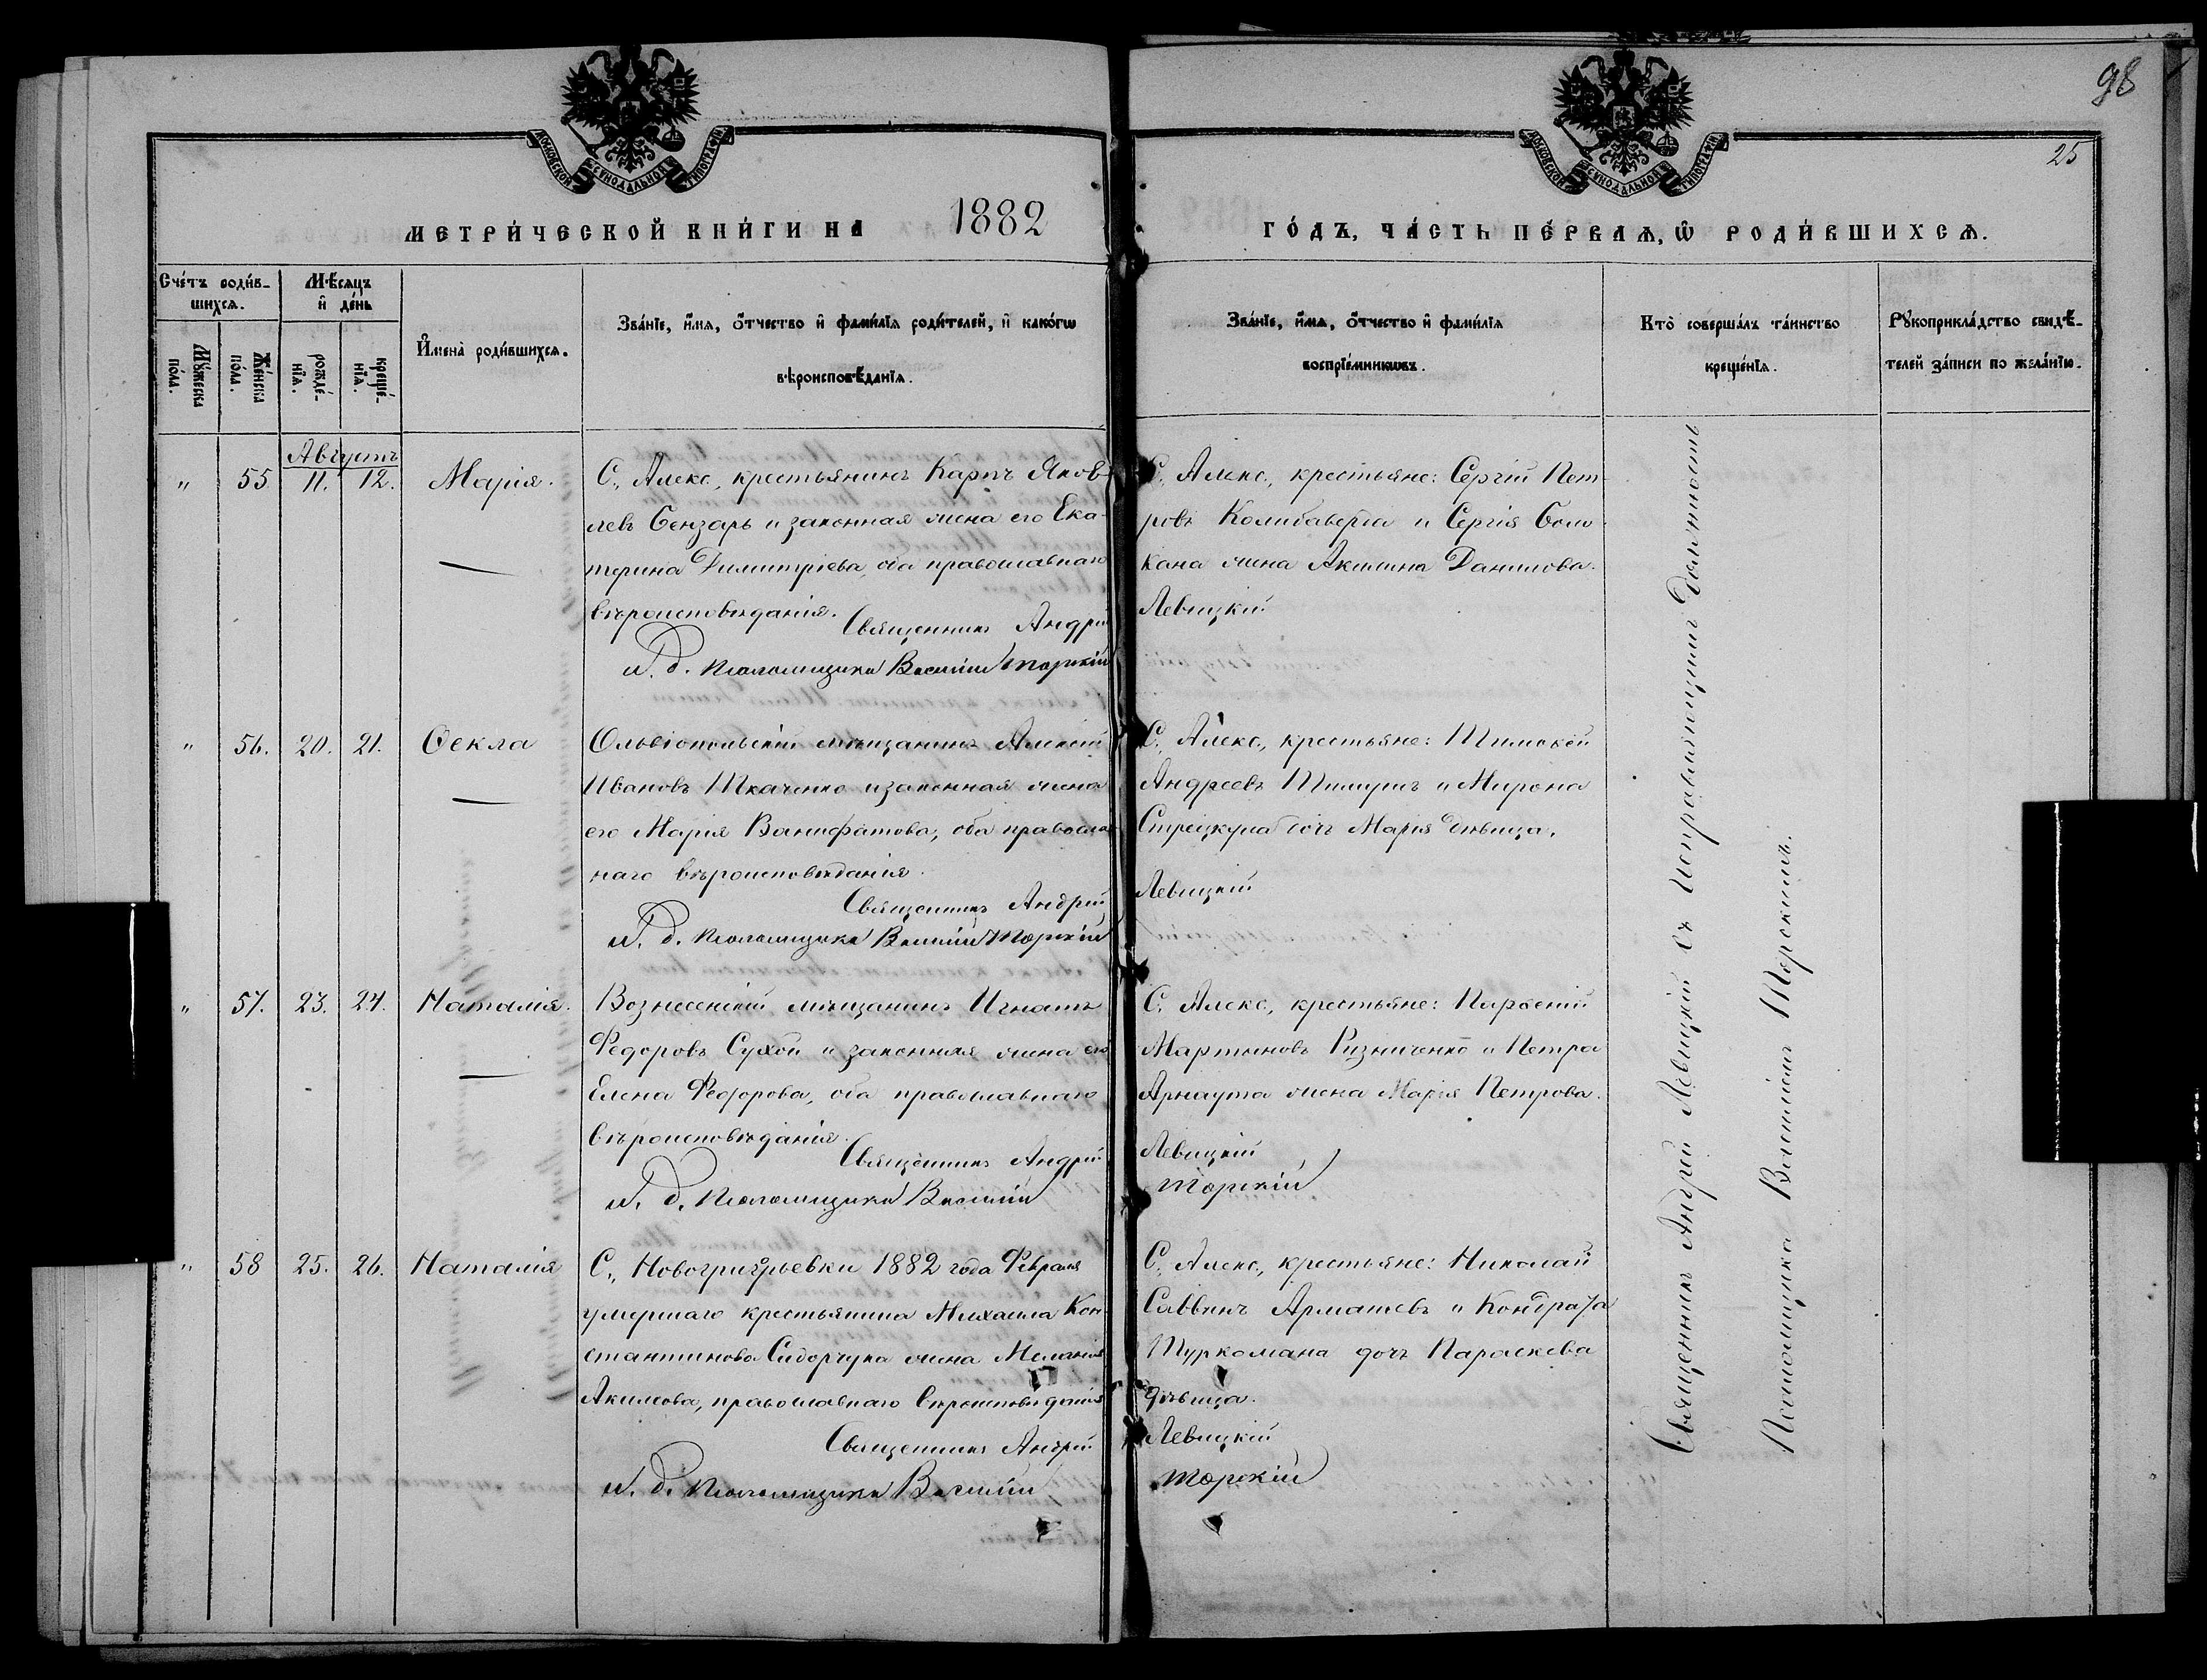 98
25
МОСКОВСКОЙ СѴНОДАЛЬНОЙ ТИПОГРАФІИ
МОСКОВСКОЙ СѴНОДАЛЬНОЙ ТИПОГРАФІИ
МЕТРИ́ЧЕСКОЙ КНИ́ГИ НА 1882
ГО́ДЪ, ЧА́СТЬ ПЕ́РВАѦ, Ѡ҆ РОДИ́ВШИХСѦ.
Сче́тъ роди́в-
шихсѧ.
Мꙋ́жеска
по́ла.
Же́нска
по́ла.
Мѣ́сѧцъ
и҆ де́нь
рожде́-
нїѧ.
креще́-
нїѧ.
И҆мена̀ роди́вшихсѧ.
Зва́нїе, и҆́мѧ, ѻ҆́тчество и҆ фами́лїѧ роди́телей, и҆ како́гѡ
вѣроисповѣ́данїѧ.
Зва́нїе, и҆́мѧ, ѻ҆́тчество и҆ фами́лїѧ
воспрїе́мникѡвъ.
Кто̀ соверша́лъ та́инство
креще́нїѧ.
Рꙋкоприкла́дство свидѣ́-
телей за́писи по жела́нїю.
Августъ
" 55 11. 12. Марія.
С. Алекс., крестьянинъ Карпъ Яков-
левъ Бензарь и законная жена его Ека-
терина Димитріева, оба православнаго
вѣроисповѣданія.
Священникъ Андрей
И. д. Псаломщика Василій Торскій
С. Алекс., крестьяне: Сергій Пет-
ровъ Колибаберда и Сергія
кана жена Акилина Данилова.
Левицкій
" 56. 20. 21. Ѳекла
Ольвіопольскій мѣщанинъ Алексій
Ивановъ Ткаченко и законная жена
его Марія Ванифатова, оба православ-
наго вѣроисповѣданія.
Священникъ Андрей
И. д. Псаломщика Василій Торскій
С. Алекс., крестьяне: Тимоѳей
Андреевъ и Мирона
дочь Марія дѣвица.
Левицкій
" 57. 23. 24. Наталія.
Вознесенскій мѣщанинъ Игнатъ
Ѳедоровъ Сухой и законная жена его
Елена Ѳедорова, оба православнаго
вѣроисповѣданія.
Священникъ Андрей
И. д. Псаломщика Василій
С. Алекс., крестьяне: Парѳеній
Мартыновъ Ризниченко и Петра
Арнаута жена Марія Петрова.
Левицкій
Торскій
" 58 25. 26. Наталія
С., Новогригорьевки 1882 года Февраля
умершаго крестьянина Михаила Кон-
стантинова Сидорчука жена Меланія
Акимова, православнаго вѣроисповѣданія
Священникъ Андрей
И. д. Псаломщика Василій
С. Алекс., крестьяне: Николай
Саввинъ Арматевъ и Кондрата
Туркомана дочь Параскева
дѣвица.
Левицкій
Торскій
Священникъ Андрей Левицкій съ исправляющимъ должность
Псаломщика Василіемъ Торскимъ.